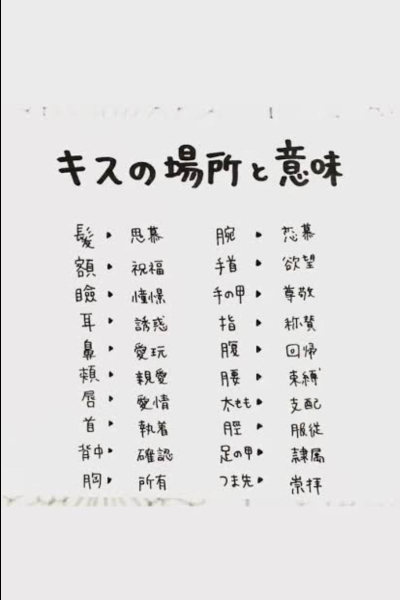 キスの場所と意味
髪▸思慕
額▸祝福
瞼▸憧憬
耳▸誘惑
鼻▸愛玩
頬▸親愛
唇▸愛情
首▸執着
背中▸確認
胸▸所有
腕▸恋慕
手首▸欲望
手の甲▸尊敬
指▸称賛
腹▸回帰
腰▸束縛
太もも▸支配
脛▸服従
足の甲▸隷属
つま先▸崇拝